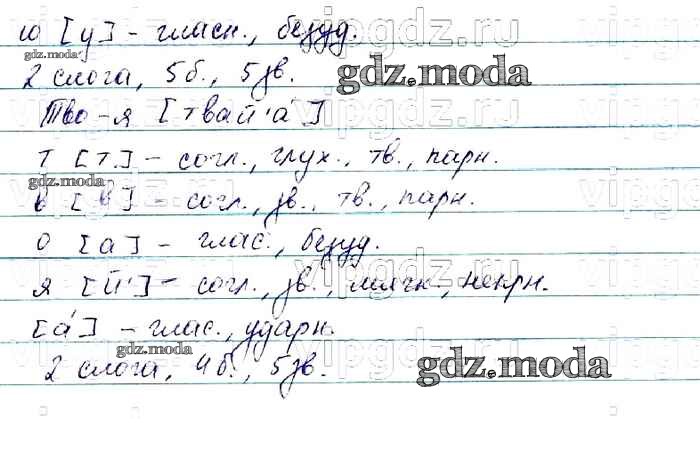 ю [у] - гласн., безуд.
gdz.moda
2 слога, 5 б., 5 зв.
gdz.moda
Тво-я [твай'а́]
т [т] - согл., глух., тв., парн.
gdz.moda
в [в] - согл., зв., тв., парн.
о [а] - глас., безуд.
я [й'] - согл., зв., мягк., непрн.
[а́] - глас., ударн.
gdz.moda
2 слога, 4 б., 5 зв.
gdz.moda